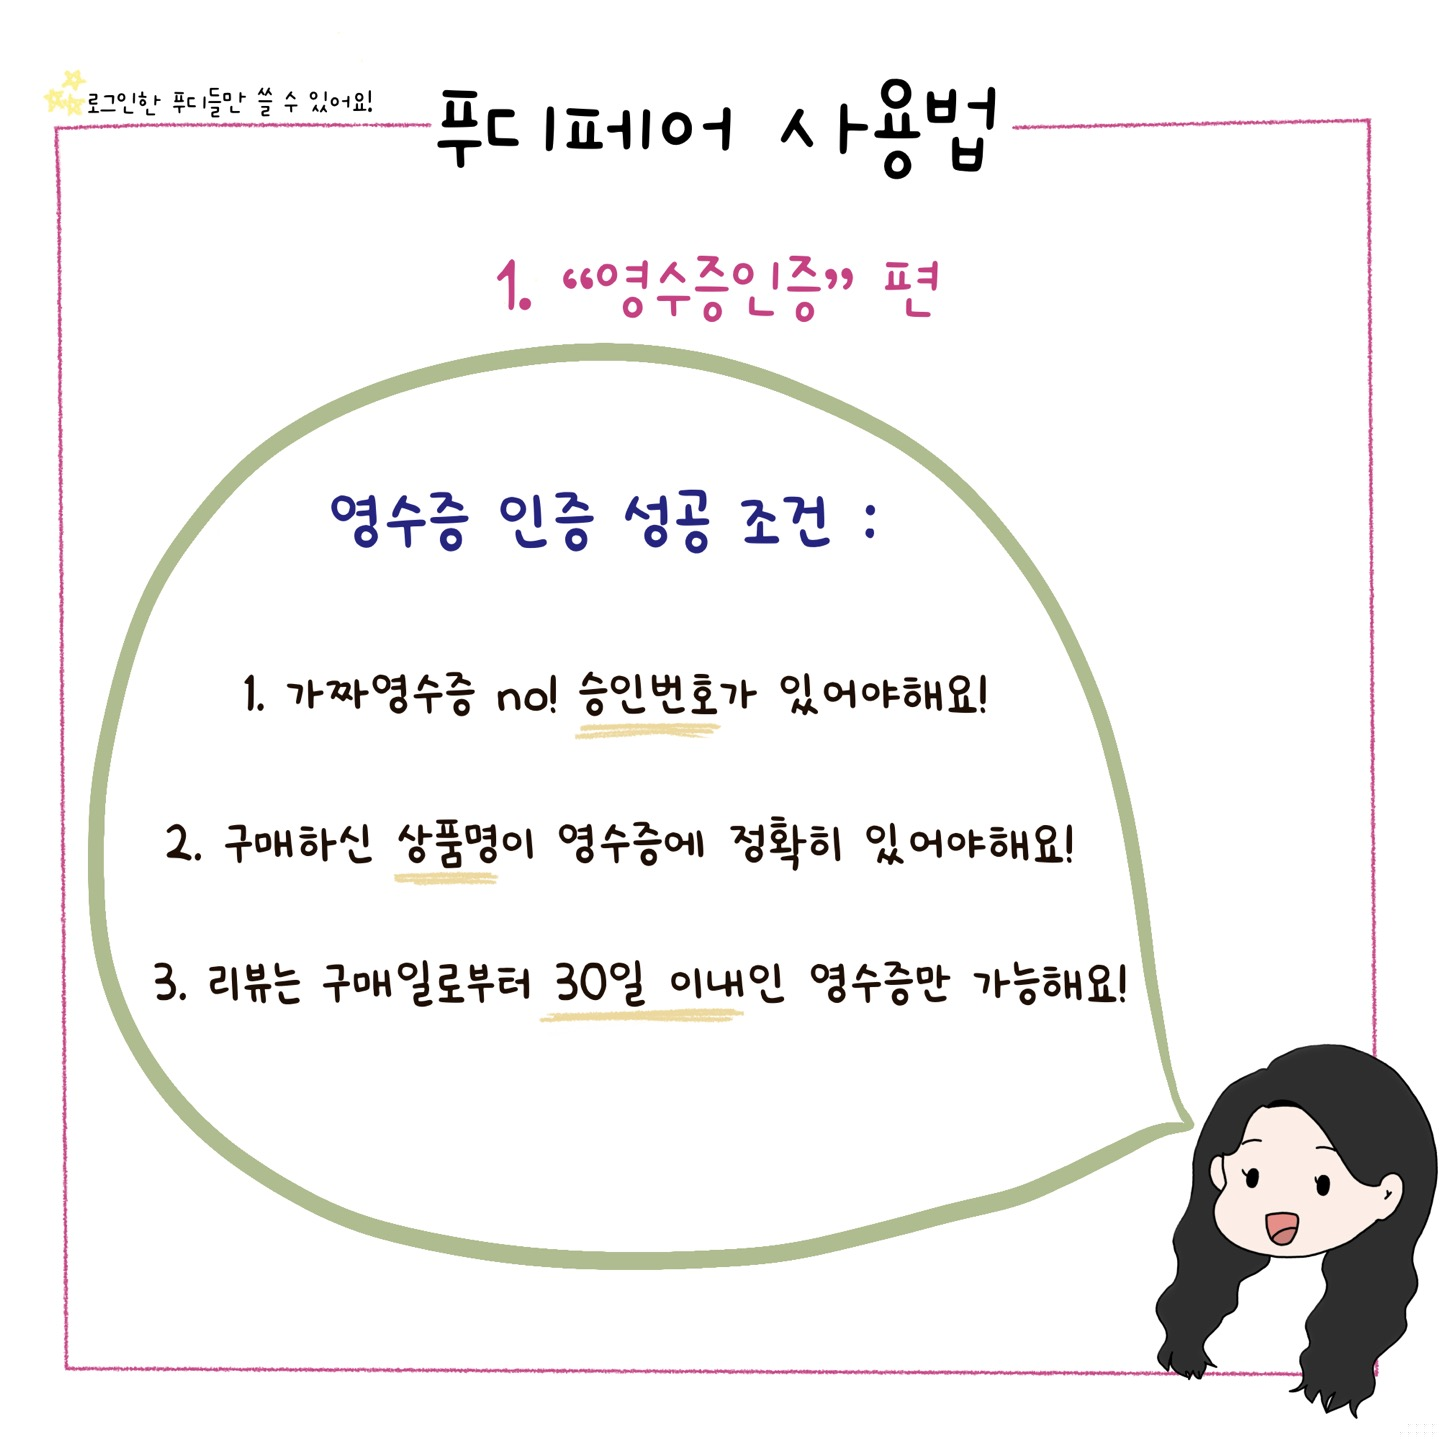 로그인한 푸디들만 쓸 수 있어요!
푸디페어 사용법
1. “영수증인증” 편
영수증 인증 성공 조건 :
1. 가짜영수증 no! 승인번호가 있어야해요!
2. 구매하신 상품명이 영수증에 정확히 있어야해요!
3. 리뷰는 구매일로부터 30일 이내인 영수증만 가능해요!